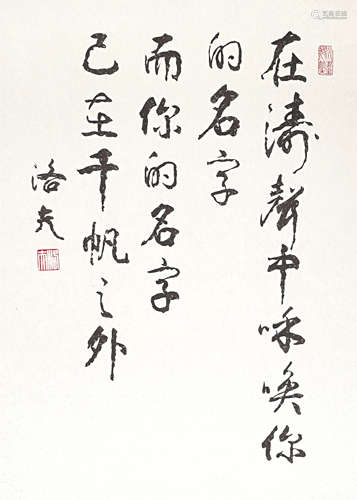 在濤聲中呼喚你
的名字
而你的名字
已在千帆之外
洛夫